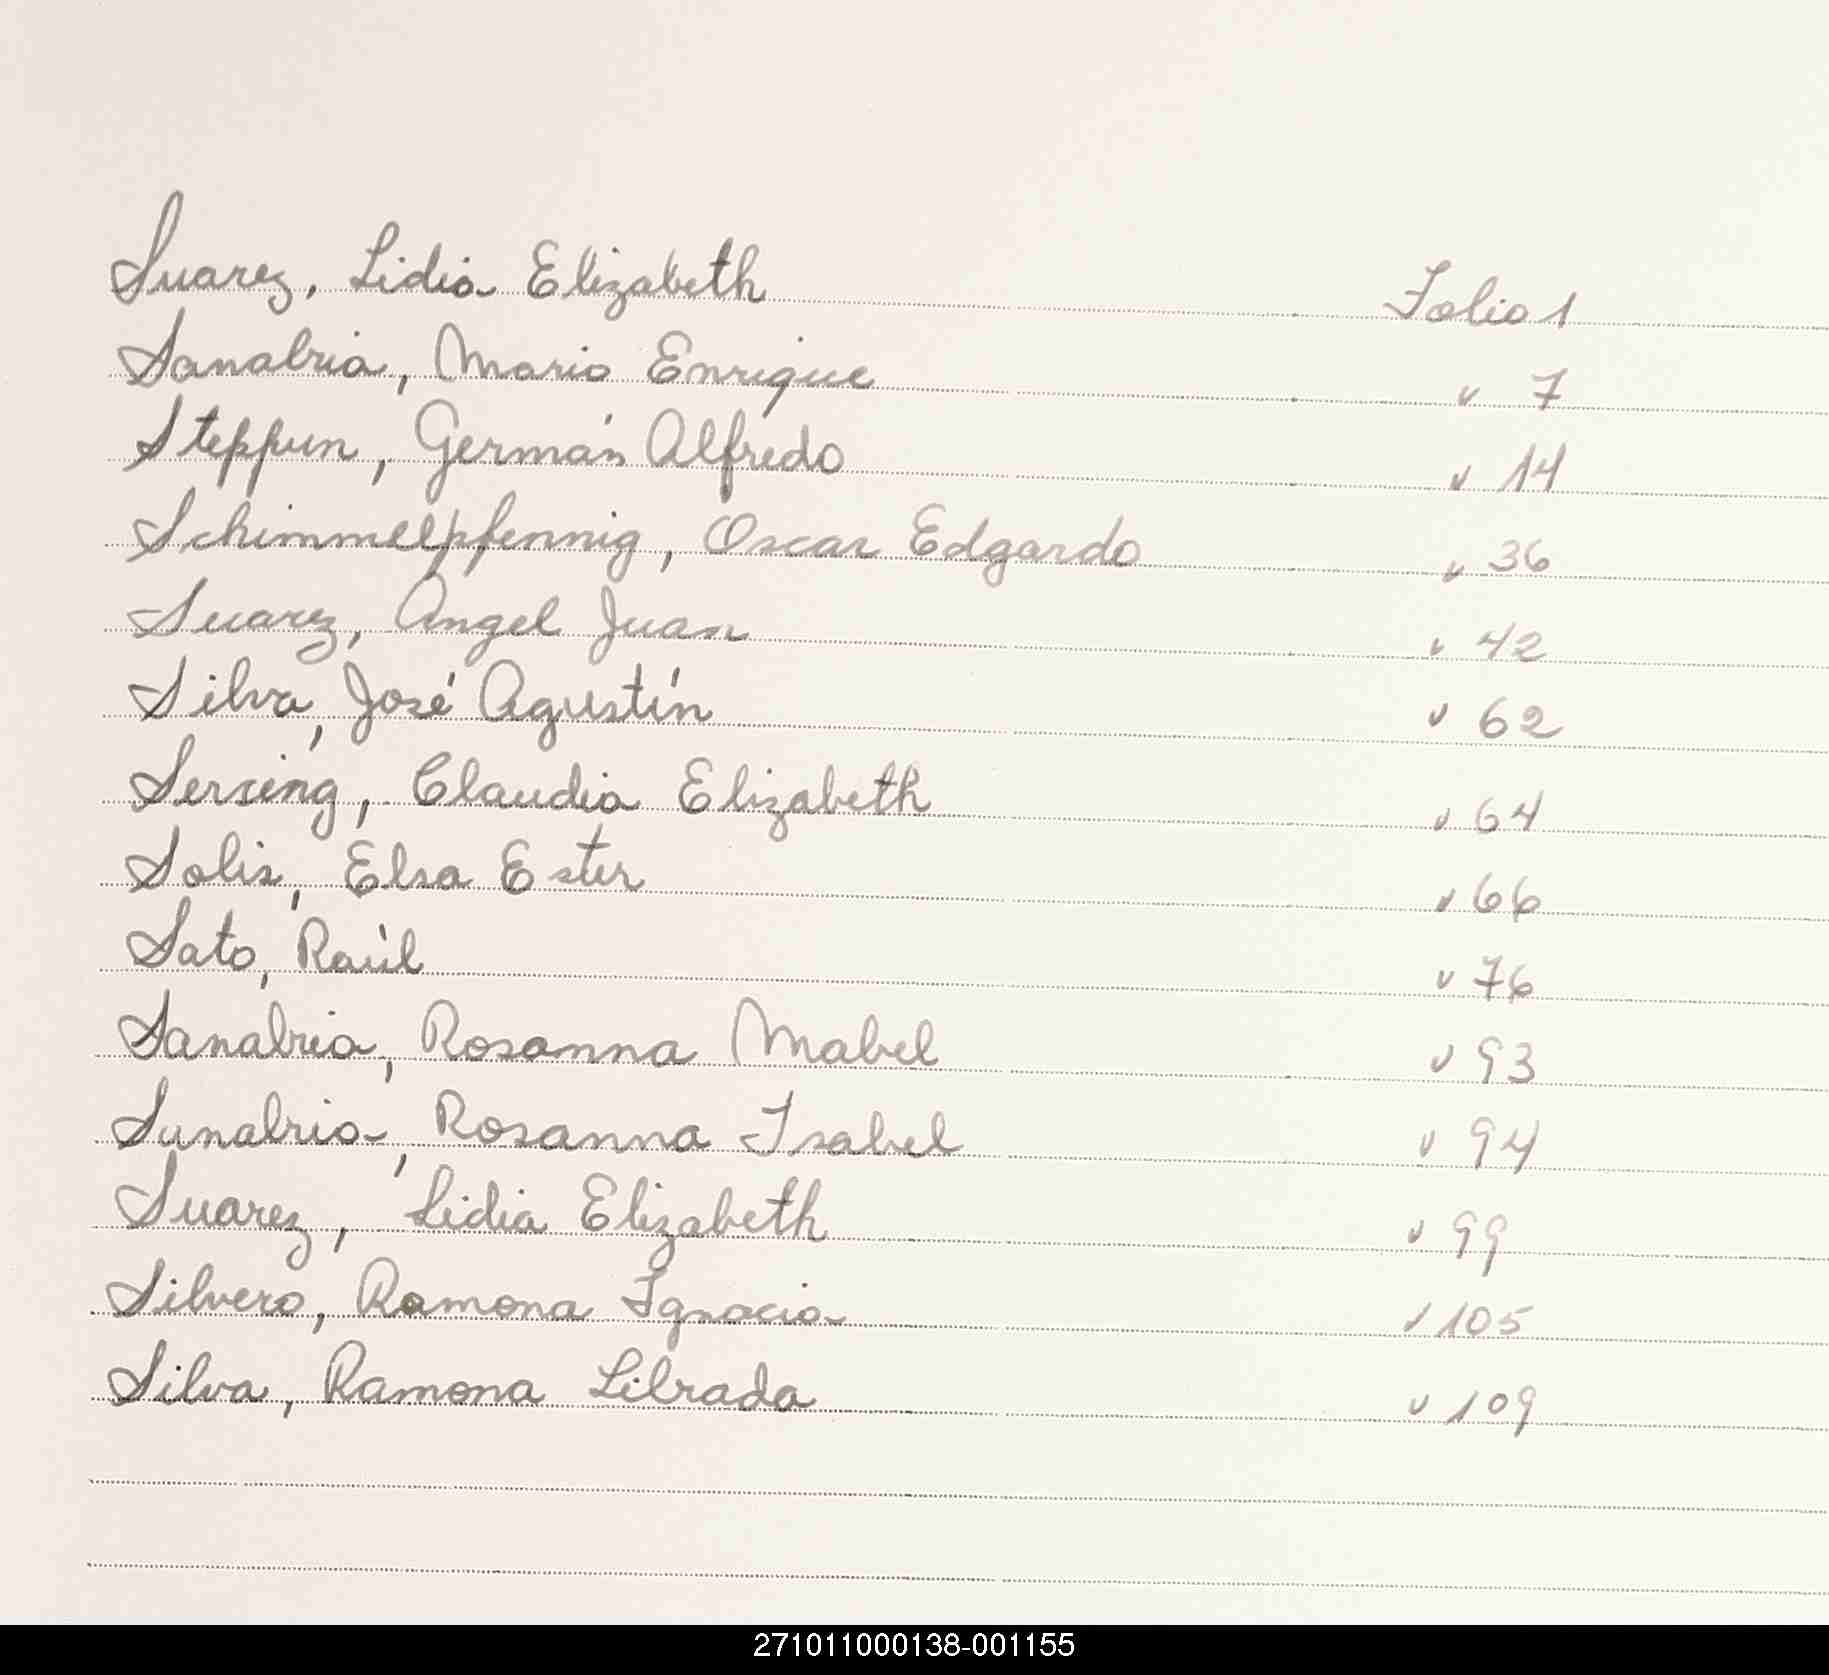 Suarez, Lidia Elizabeth Folio 1
Sanabria, Mario Enrique " 7
Steppun, Germán Alfredo " 14
Schimmelpfennig, Oscar Edgardo " 36
Suarez, Angel Juan " 42
Silva, José Agustín " 62
Sersing, Claudia Elizabeth " 64
Solis, Elsa Ester " 66
Sato, Raúl " 76
Sanabria, Rosanna Mabel " 93
Sanabria, Rosanna Isabel " 94
Suarez, Lidia Elizabeth " 99
Silvero, Ramona Ignacia " 105
Silva, Ramona Librada " 109
271011000138-001155